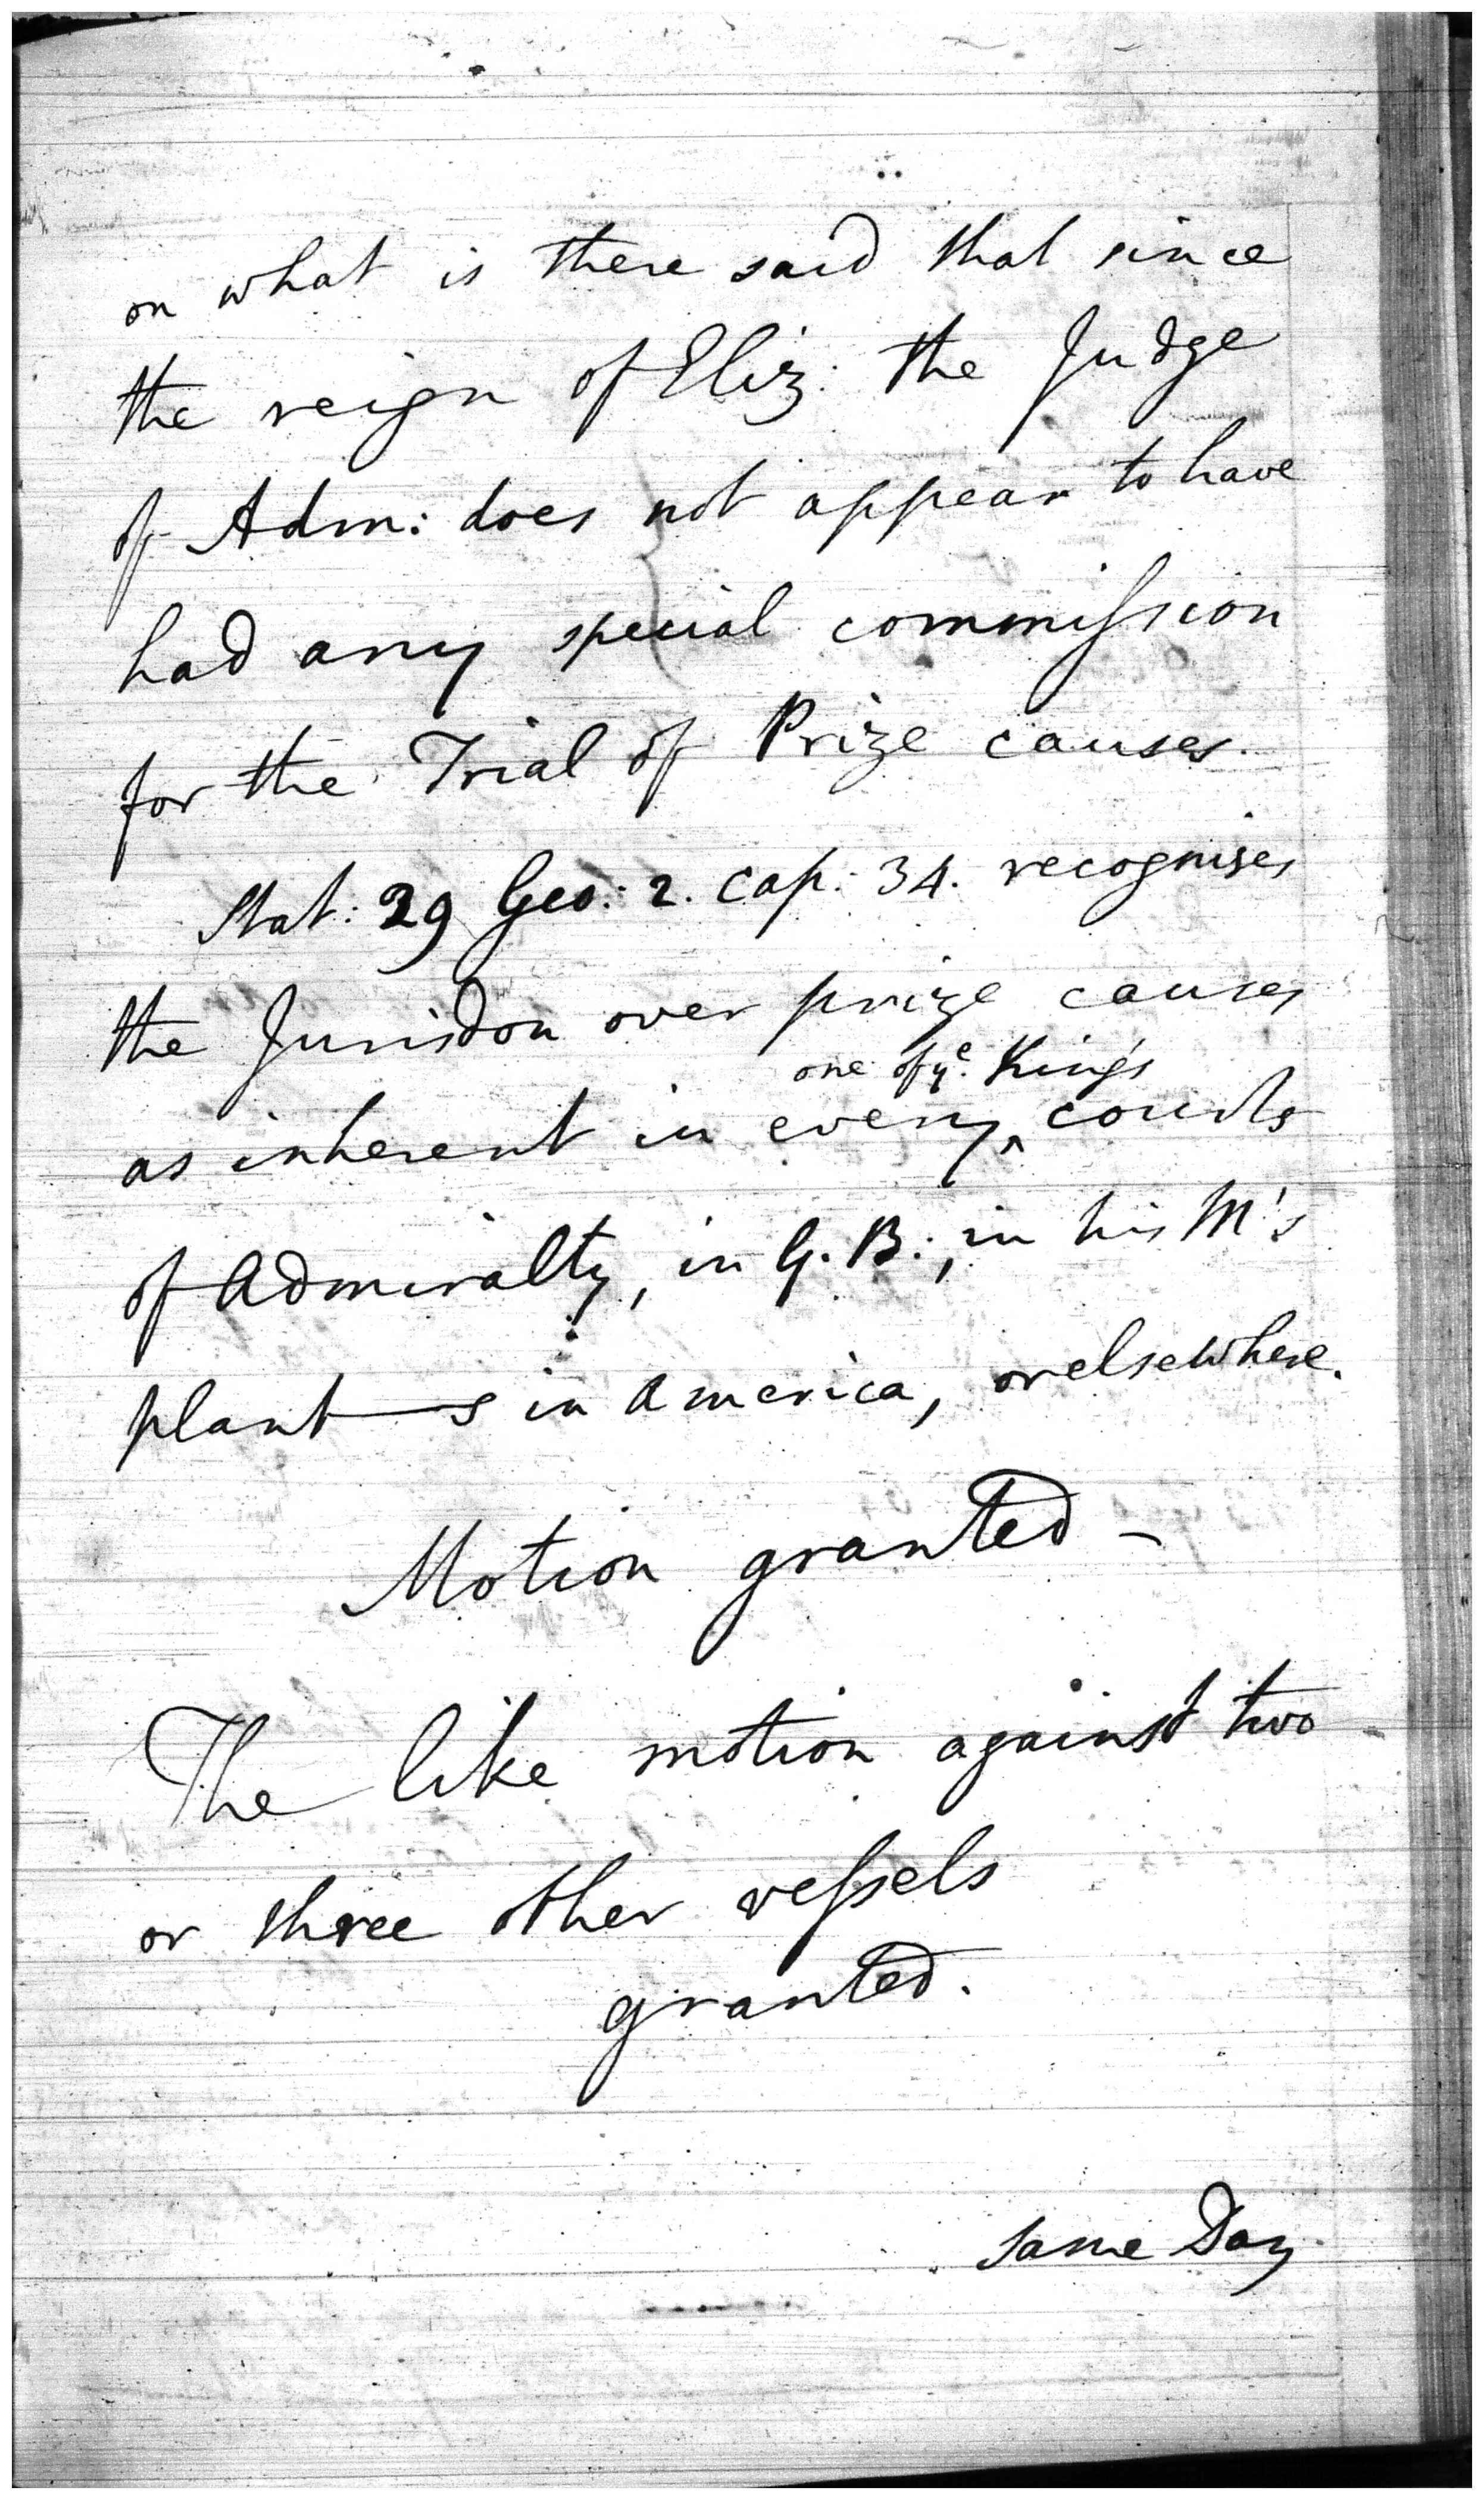 on what is there said that since
the reign of Eliz: the Judge
of Adm: does not appear to have
had any special commiſsion
for the Trial of Prize causes.
Stat: 29 Geo: 2. cap: 34. recognises
the Jurisdon over prize causes
one of yͤ. King's
as inherent in every ‸ courts
of Admiralty, in G. B.; in his M's
plant—s in America, or elsewhere.
Motion granted –
The like motion against two
or three other veſsels
granted.
Same Day